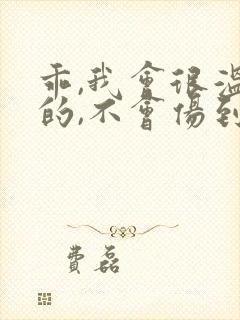 乖,我會很溫
的,不會傷到
費磊